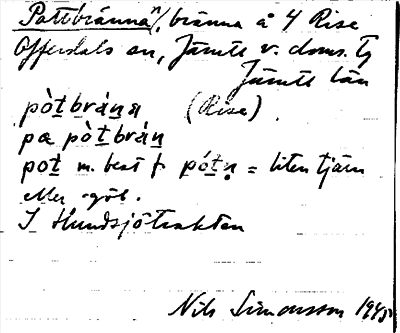 Pottbränna^n/, bränna å 4 Rise
Offerdals sn, Jämtl. v. doms. Tg
Jämtl. län
pòt̲brán̲a (Rise)
pa pòt̲brán̲
pot̲ m. best f. pót̲n̥ = liten tjärn
eller göl.
I Hundsjötrakten
Nils Simonsson 1945